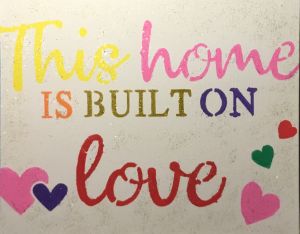 This home
IS BUILT ON
love